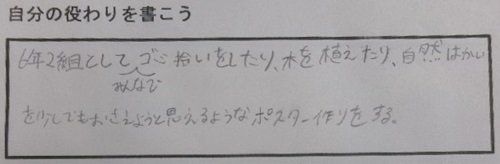 自分の役わりを書こう
6年2組としてゴミ拾いをしたり、木を植えたり、自然はかい
みんなで
を少しでもおさえようと思えるようなポスター作りをする。